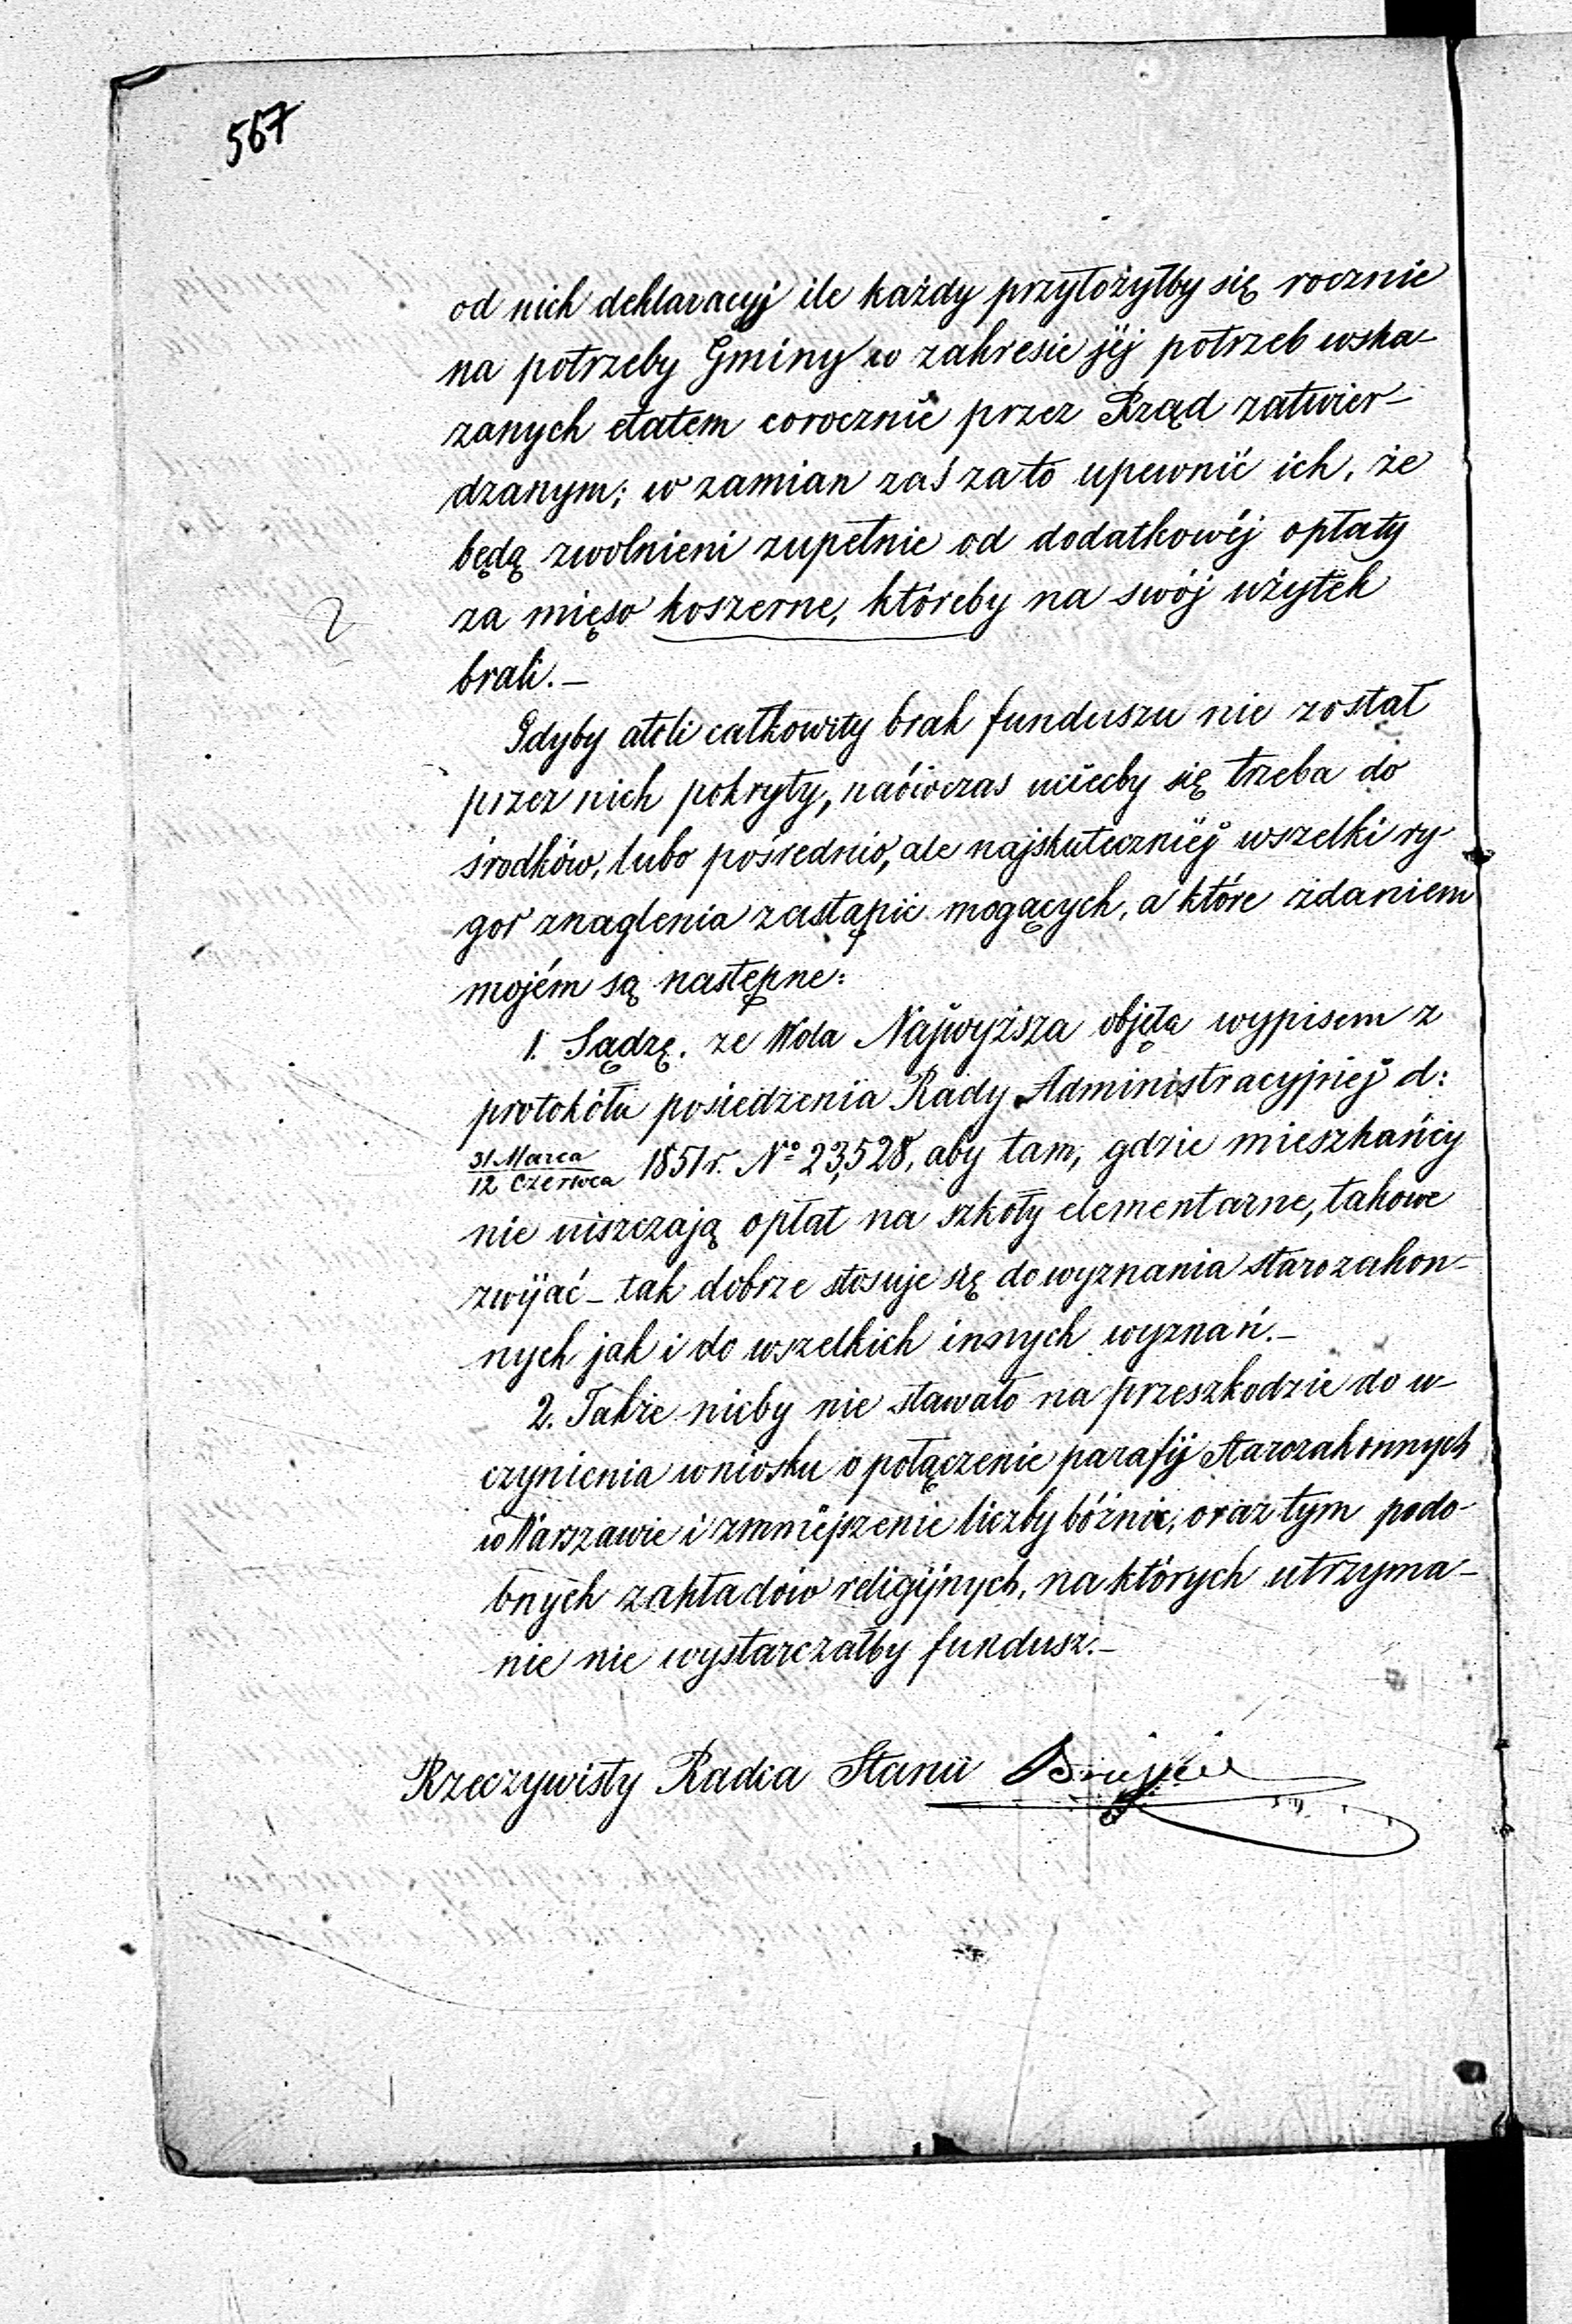 567
od nich deklaracyj ile każdy przyłożyłby się rocznie
na potrzeby Gminy w zakresie jéj potrzeb wska-
zanych etatem corocznie przez Rząd zatwier-
dzanym; w zamian zaś za to upewnić ich, że
będą zwolnieni zupełnie od dodatkowéj opłaty
za mięso koszerne, któreby na swój użytek
brali.—
Gdyby atoli całkowity brak funduszu nie został
przez nich pokryty, naówczas uciecby się trzeba do
środków, lubo pośrednio, ale najskuteczniéj wszelki ry-
gor znaglenia zastąpić mogących, a które zdaniem
mojém są następne:
1. Sądzę, że Wola Najwyższa objęta wypisem z
protokółu posiedzenia Rady Administracyjnéj d:
31 Marca / 12 Czerwca 1851 r. No 23,528, aby tam, gdzie mieszkańcy
nie uiszczają opłat na szkoły elementarne, takowe
zwijać – tak dobrze stosuje się do wyznania starozakon-
nych jak i do wszelkich innych wyznań.—
2. Także nicby nie stawało na przeszkodzie do u-
czynienia wniosku o połączenie parafij Starozakonnych
w Warszawie i zmniejszenie liczby bóżnic, oraz tym podo-
bnych zakładów religijnych, na których utrzyma-
nie nie wystarczałby fundusz.—
Rzeczywisty Radca Stanu